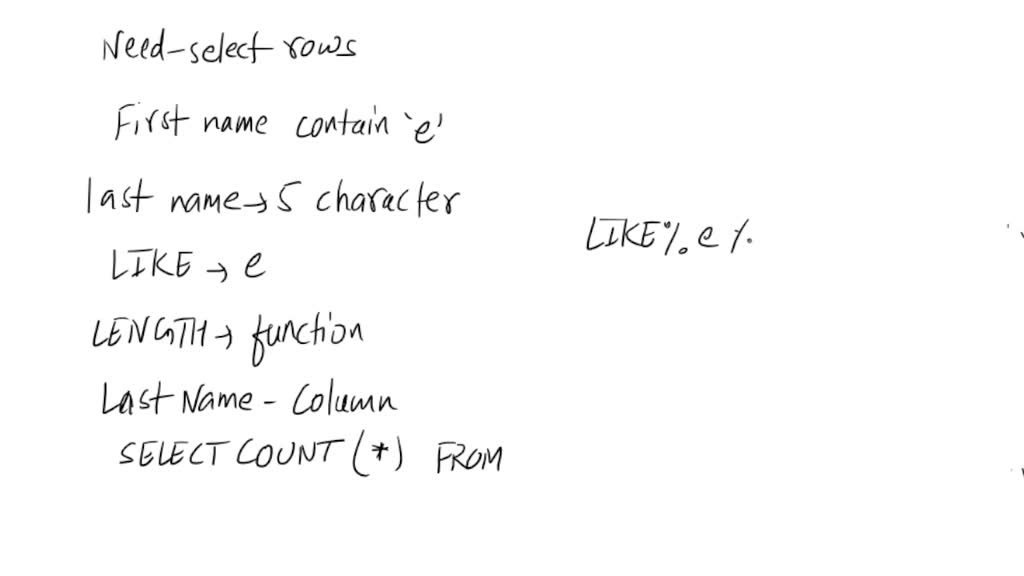 Need-select rows
First name contain 'e'
last name→5 character
LIKE % e %
LIKE → e
LENGTH→ function
Last Name - Column
SELECT COUNT (*) FROM